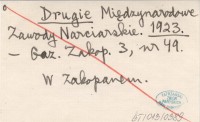 Drugie Międzynarodowe
Zawody Narciarskie. 1923.
— Gaz. Zakop. 3, nr 49.
W Zakopanem.